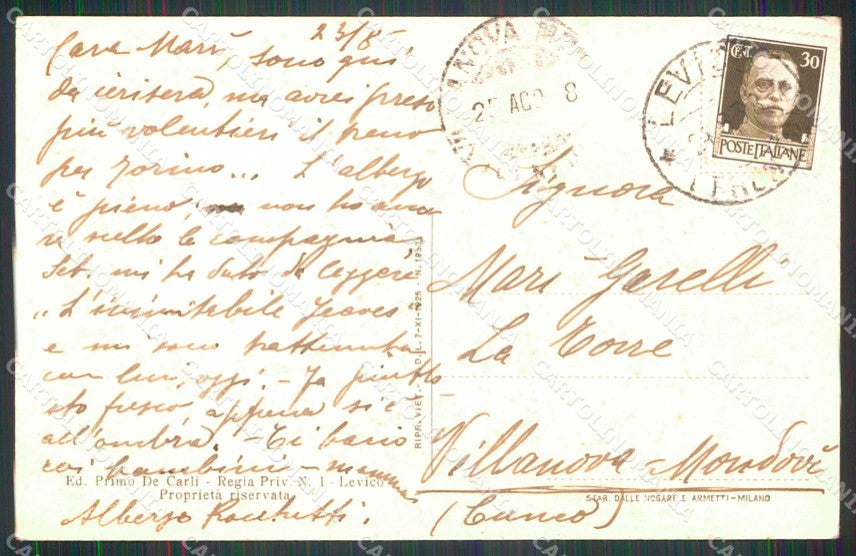 23/8
Cara Mari, sono qui
da ierisera, ma avrei preso
più volentieri il treno
per Torino... L'albergo
è pieno, non ho anco
ra scelto la compagnia
Seb. mi ha dato da leggere
"L'inimitabile Jeeves"
e mi sono trattenuta
con lui, oggi. - Fa piutto
sto fresco appena si è
all'ombra. - Ti bacio
coi bambini - mamma
Ed. Primo De Carli - Regia Priv. N. 1 - Levico
Proprietà riservata
Albergo Rocchetti.
RIPR. VIET. D.L. 7-XI-1925 - N. 1
VILLANOVA MONDOVI
25 AGO 8
LEVICO
Cent. 30
POSTE ITALIANE
Signora
Mari Garelli
La Torre
Villanova-Mondovì
STAB. DALLE NOGARE E ARMETTI - MILANO
(Cuneo)
CARTOLINOMANIA